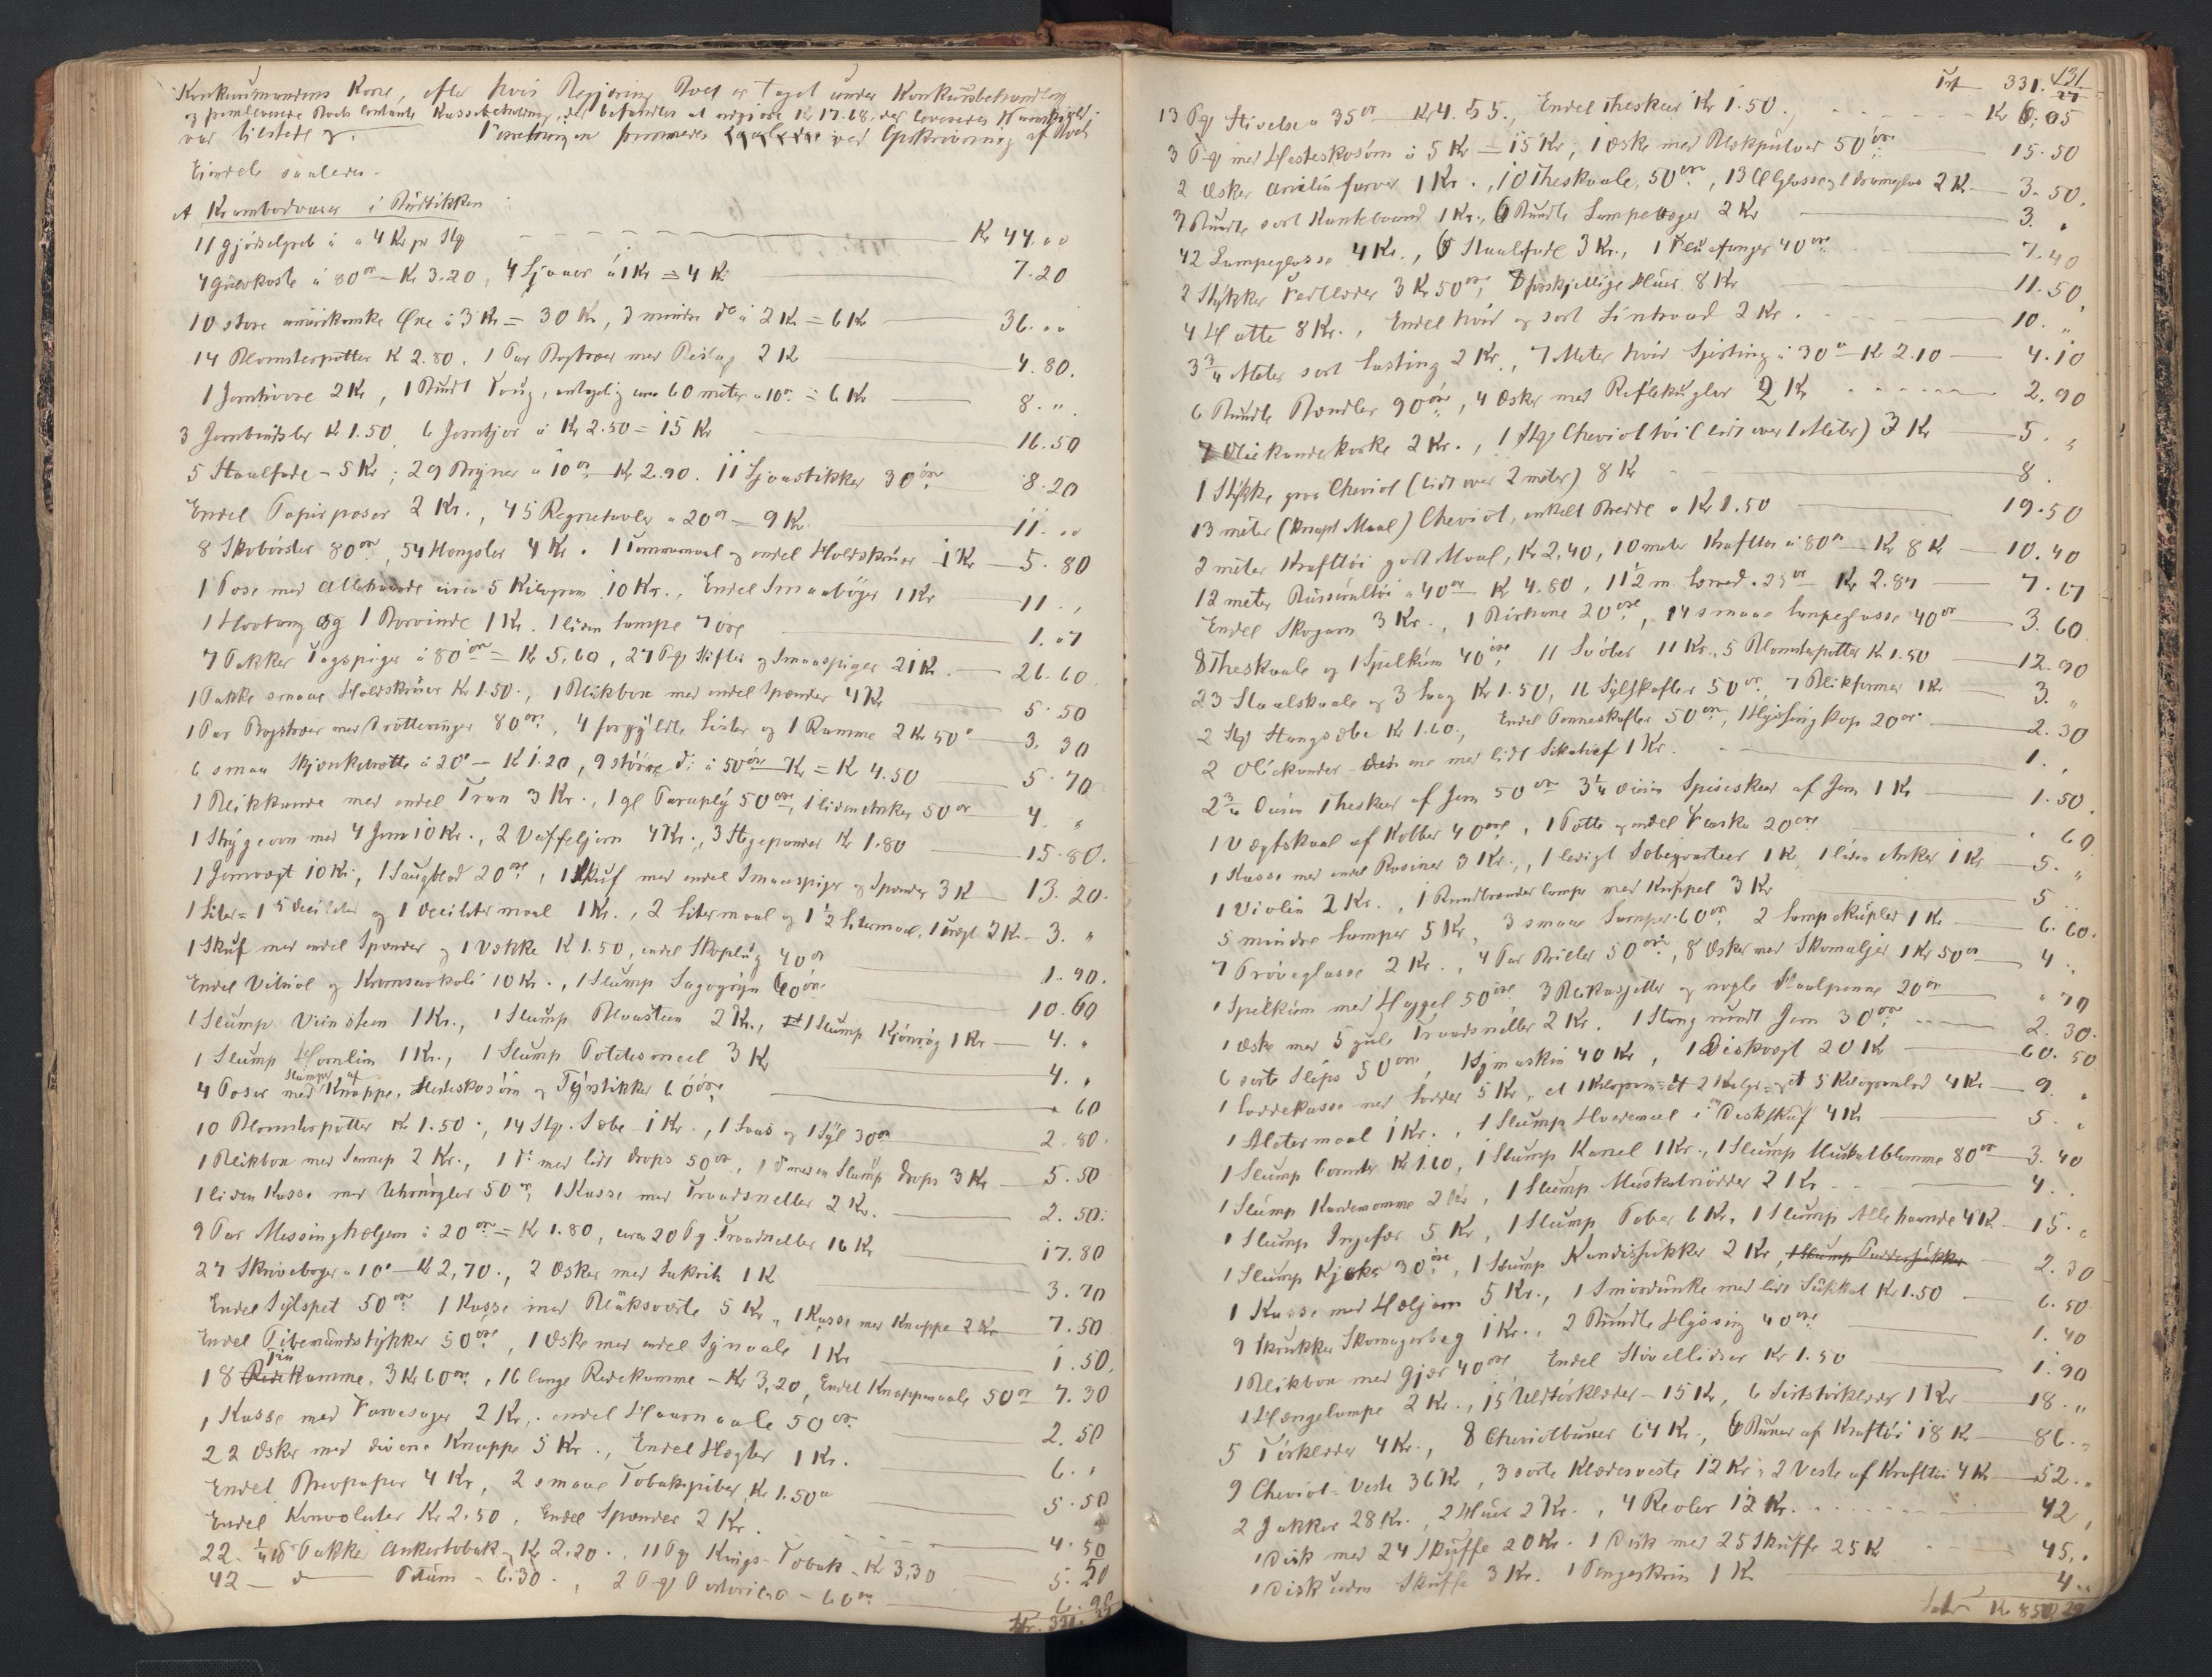 Konkursmandens Kone, efter hvis Begjæring Boet er taget under Konkursbehandling
og fremleverede Boets contante Kassebeholdning, der befandtes at udgjøre Kr 17.68, der leveredes
var tilstede og. Forretningen fremmedes saaledes ved Opskrivning af Boets
Eiendele saaledes.
A Krambodvarer i Butikken
11 gjødselgreb à 4 Kr pr Stk Kr 44.00
4 gulvkoste à 80 ør Kr 3.20, 4 Ljaaer à 1 Kr = 4 Kr 7.20
10 store amerikanske Øxe à 3 Kr = 30 Kr, 3 mindre do à 2 Kr = 6 Kr 36.00
14 Blomsterpotter K 2.80. 1 Par Bogtræer med Beslag 2 Kr 4.80.
1 Jernhivve 2 Kr, 1 Bundt Toug, antagelig circa 60 meter à 10 ør = 6 Kr 8. "
3 Jernbeidsler Kr 1.50, 6 Jerntjor à Kr 2.50 = 15 Kr 16.50
5 Staalfade - 5 Kr; 29 Bryner à 10 ør Kr 2.90. 11 Ljaastikker 30 øre 8.20
Endel Papirposer 2 Kr., 45 Regnetavler à 20 ør = 9 Kr 11.00
8 Skobørster 80 ør, 54 Hængsler 4 Kr. 1 Tommemaal og endel Holdskruer 1 Kr 5.80
1 Pose med Allehaande circa 5 Kilogram 10 Kr., Endel Smaabøger 1 Kr 11. ,
1 Hovtang og 1 Borvinde 1 Kr. 1 liden Lampe 7 øre 1.07
7 Pakker Tagspiger à 80 øre = Kr 5,60, 27 Pg Stifter og Smaaspiger 21 Kr. 26.60
1 Pakke smaae Holdskruer Kr 1.50., 1 Blikboxe med endel Spænder 4 Kr 5.50
1 Par Bogtræer med Trotteringer 80 ør, 4 forgyldte Lister og 1 Ramme 2 Kr 50 ø 3.30
6 smaa Skjænkebrette à 20 ø - Kr 1.20, 9 større do à 50 øre = Kr 4.50 5.70
1 Blikkande med endel Tran 3 Kr., 1 gl Paraply 50 øre, 1 liden Anker 50 ør 4. "
1 Strygeovn med 4 Jern 10 Kr., 2 Vaffeljern 4 Kr., 3 Stegepander Kr 1.80 15.80.
1 Jernvægt 10 Kr, 1 Saugblad 20 øre, 1 Skuf med endel Smaaspiger og Spænder 3 K 13.20.
1 Liter = 1 5 Deciliter og 1 Deciliter maal 1 Kr., 2 Litermaal og 1 ½ Litermaal, 1 vægt 2 Kr. 3. "
1 Skuf med endel Spænder og 1 Vække K 1.50, endel Skoplug 40 ør 1.90.
Endel Vitriol og Kromsurkali 10 Kr., 1 Slump Sagogryn 60 øre 10.60
1 Slump Viinsteen 1 Kr., 1 Slump Blaasteen 2 Kr., 1 Slump Kjønrøg 1 Kr 4. "
1 Slump Hornlim 1 Kr., 1 Slump Potetesmeel 3 Kr 4. ,
4 Poser med Slumper af Knappe, Hesteskosøm og Fyrstikker 60 øre " 60
10 Blomsterpotter Kr 1.50., 14 Stk. Sæbe 1 Kr., 1 Saas og 1 Syl 30 ør 2.80.
1 Blikboxe med Sennep 2 Kr., 1 do med lidt Drops 50 ør, 1 do med en Slump Drops 3 Kr 5.50
1 liden Kasse med Uhrnøgler 50 ør, 1 Kasse med Traadsneller 2 Kr. 2.50.
9 Par Messinghægjern à 20 øre = Kr 1.80, circa 20 Pg. Traadsneller 16 Kr 17.80
27 Skrivebøger à 10 ø Kr 2,70., 2 Æsker med Lakrits 1 K 3.70
Endel Sylspet 50 øre 1 Kasse med Blæksværte 5 Kr, 1 Kasse med Knappe 2 Kr 7.50
Endel Pibemundstykker 50 øre, 1 Æske med endel Synaale 1 Kr 1.50.
18 Fiin Kamme, 3 Kr 60 øre, 16 lange Redekamme - Kr 3,20, Endel Knappenaale 50 ør 7.30
1 Kasse med Farvesager 2 Kr, endel Haarnaale 50 ør. 2.50
22 Æsker med diverse Knappe 5 Kr., Endel Hægter 1 Kr. 6. ,
Endel Brevpapir 4 Kr, 2 smaae Tobakspiber, Kr 1.50 5.50
Endel Konvolutter Kr 2.50, Endel Spænder 2 Kr. 4.50
22. ¼ Pakke Ankertobak Kr 2.20., 11 Pg Kings-Tobak Kr 3,30 5.50
42 - do Plum - 6.30., 2 Pg Portorico - 60 ør 6.90
Kr. 331.27
Trf 331.27
131
13 Pg Stivelse à 35 ør Kr 4.55., Endel Theskeer Kr 1.50. Kr 6.05
3 Pg med Hesteskosøm à 5 Kr = 15 Kr; 1 Æske med Blækpulver 50 øre 15.50
2 Æsker Anilinfarver 1 Kr., 10 Theskaale, 50 øre, 13 Ølglasse og 1 dramglas 2 K 3.50.
3 Bundte sort Kantebaand 1 Kr., 6 Bundte Lampevæger 2 Kr 3. "
42 Lampeglasse 4 Kr., 6 Staalfade 3 Kr., 1 Fluefanger 40 øre 7.40
2 Stykker 3 Kr 50 øre, 8 forskjellige Huer 8 Kr 11.50
4 Hatte 8 Kr., Endel hvid og sort Lintraad 2 Kr. 10. "
3 ¾ Meter sort Lasting 2 Kr., 7 Meter hvid Sjirting à 30 ø Kr 2.10 4.10
6 Bundte Bændler 90 øre, 4 Æsker med Riflekugler 2 Kr 2.90
7 Oliekandekorke 2 Kr., 1 Stk. Cheviottøi (lidt over 1 Meter) 3 Kr 5. "
1 Stykke graa Cheviot (lidt over 2 meter) 8 Kr 8.
13 meter (knapt Maal) Cheviot, enkelt Bredde à Kr 1.50 19.50
2 meter Krafttøi godt Maal, Kr 2,40, 10 meter Krafttøi à 80 ør Kr 8 10.40
12 meter Busserultøi à 40 ør K 4.80, 11 ½ m Lærred à 25 ør Kr 2.87 7.67
Endel Skogarn 3 Kr., 1 20 øre, 14 smaae Lampeglasse 40 ør 3.60
8 Theskaale og 1 Spilkum 40 øre, 11 Svøber 11 Kr., 5 Blomsterpotter Kr 1.50 12.90
23 Staalskaale og 3 Laag Kr 1.50, 16 Sylskafter 50 ør, 7 Blikformer 1 Kr 3. "
2 Stk Stangsæbe Kr 1.60, Endel Penneskafter 50 øre, 1 Hyssing 20 ør 2.30
2 Oliekander - den ene med lidt Sikativ 1 Kr. 1. ,
2 ¾ Dusin Theskeer af Jern 50 ør 3 ¼ Dusin Spiseskeer af Jern 1 Kr 1.50.
1 Vægtskaal af Kobber 40 øre, 1 Potte og endel Flaske 20 øre " 60
1 Kasse med endel Rosiner 3 Kr., 1 ledigt Sæbeqvarteer 1 Kr, 1 liden Anker 1 Kr 5. "
1 Violin 2 Kr., 1 Rundbrænder lampe med Kuppel 3 Kr 5 ..
5 mindre Lamper 5 Kr, 3 smaae Lamper 60 ør 2 Lampekupler 1 Kr 6.60.
7 Prøveglasse 2 Kr., 4 Par Briller 50 øre, 8 Æsker med Skomaljer 1 Kr 50 ør 4 ..
1 Spilkum med Haggel 50 øre 3 Blikasjetter og nogle Staalpenne 20 ør " 70
1 Æske med 5 gule Traadsneller 2 Kr. 1 Stang rundt Jern 30 øre 2.30.
6 sorte Slips 50 øre, 1 Symaskin 40 Kr, 1 Diskvægt 20 Kr 60.50
1 Loddekasse med Lodder 5 Kr, et 1 Kilogram = et 2 Kilogr = og et 5 Kilogramlod 4 Kr 9. "
1 Aletermaal 1 Kr., 1 Slump Hvedemeel i en Diskskuf 4 Kr 5. "
1 Slump Corender Kr 1.60, 1 Slump Kanel 1 Kr., 1 Slump Muskatblomme 80 ør 3.40
1 Slump Kardemomme 2 Kr, 1 Slump Muskatnødder 2 Kr 4. .
1 Slump Ingefær 5 Kr, 1 Slump Peber 6 Kr, 1 Slump Allehaande 4 Kr 15. "
1 Slump Kjeks 30 øre, 1 Slump Kandissukker 2 Kr, 1 Slump Puddersukker 2.30
1 Kasse med Hægjern 5 Kr., 1 Smørdunke med lidt Sukkat Kr 1.50 6.50
9 Skrukke Skomagerbeg 1 Kr., 2 Bundte Hyssing 40 øre 1.40
1 Blikboxe med Gjær 40 øre, Endel Støvellidser Kr 1.50 1.90
1 Hængelampe 2 Kr., 15 Uldtørklæder - 15 Kr, 6 Sirtstørklæder 1 Kr 18. "
5 Tørklæder 4 Kr., 8 Cheviotbuxer 64 Kr., 6 Buxer af Krafttøi 18 Kr 86. "
9 Cheviot-Veste 36 Kr, 3 sorte Klædesveste 12 Kr, 2 Veste af Krafttøi 4 Kr 52. "
2 Jakker 28 Kr., 2 Huer 2 Kr., 4 Reoler 12 Kr. 42,
1 Disk med 24 Skuffe 20 Kr. 1 Disk med 25 Skuffe 25 K 45..
1 Disk uden Skuffe 3 Kr. 1 Pengeskrin 1 K 4 ..
Latr Kr 850 29